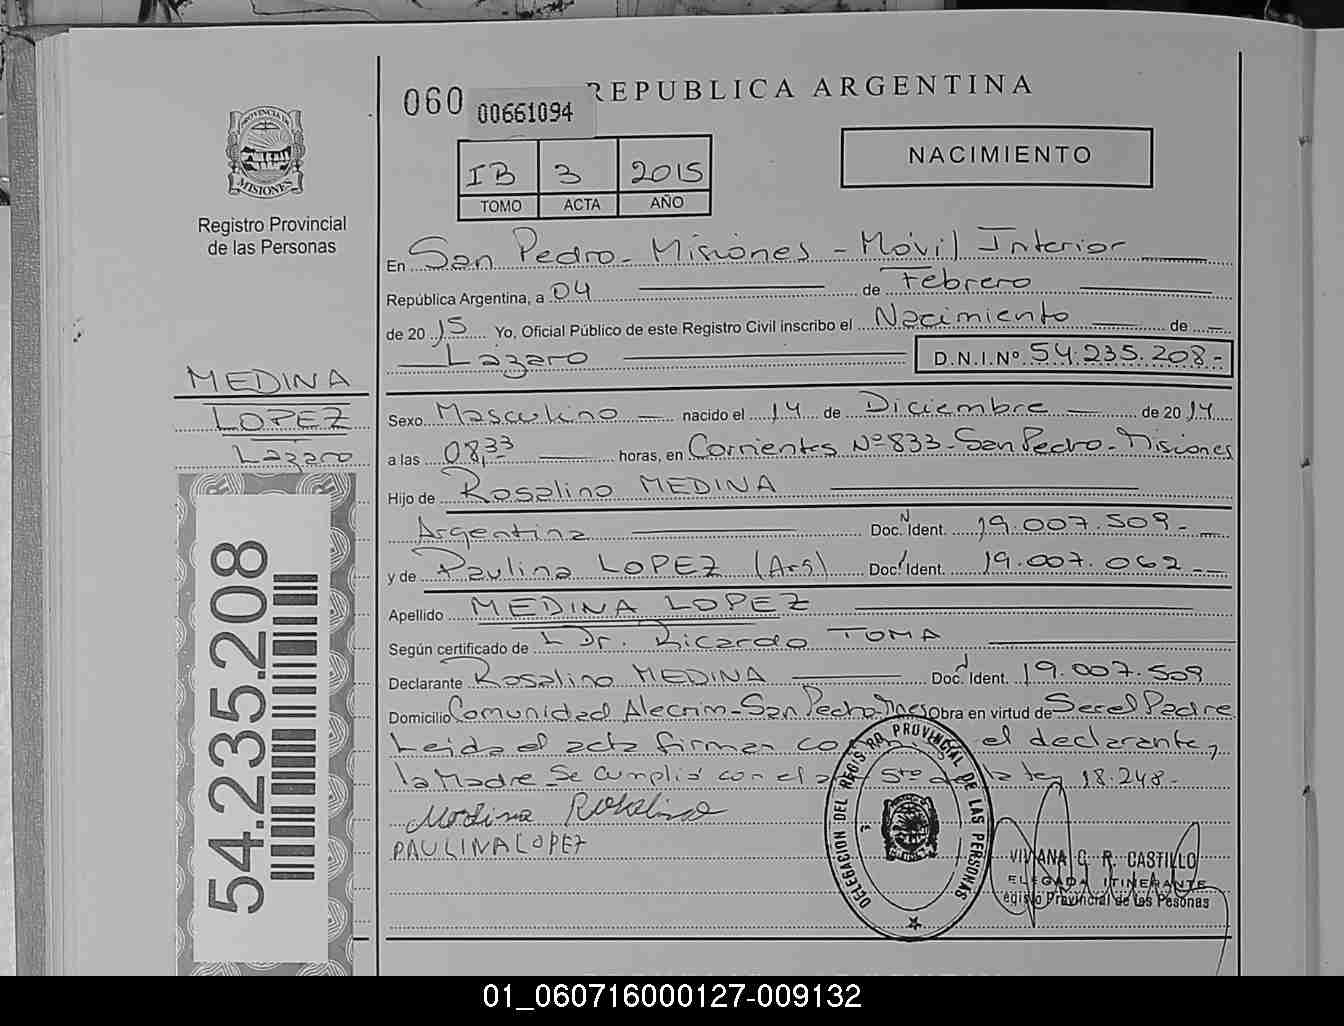 060 00661094 REPUBLICA ARGENTINA
PROVINCIA DE
MISIONES
Registro Provincial
de las Personas
IB 3 2015
TOMO ACTA AÑO
NACIMIENTO
En San Pedro - Misiones - Móvil Interior
República Argentina, a 04 de Febrero
de 2015 Yo, Oficial Público de este Registro Civil inscribo el Nacimiento de
Lázaro D.N.I.Nº 54.235.208.-
MEDINA
LOPEZ
Lazaro
Sexo Masculino nacido el 14 de Diciembre de 2014
a las 08,33 horas, en Corrientes Nº 833 - San Pedro - Misiones
Hijo de Rosalino MEDINA
Argentina Doc. N Ident. 19.007.509.-
y de Paulina LOPEZ (Arg) Doc. Ident. 19.007.062.-
Apellido MEDINA LOPEZ
Según certificado de L Dr. Ricardo TOMA
Declarante Rosalino MEDINA Doc. Ident. 19.007.509
Domicilio Comunidad Alecrim - San Pedro Mnes Obra en virtud de Ser el Padre
Leída el acta firman co el declarante,
la Madre. Se cumplió con el a 5to de la ley 18.248.-
Medina Rosalino
PAULINA LOPEZ
DELEGACION DEL REGISTRO PROVINCIAL DE LAS PERSONAS
VIVIANA C. R. CASTILLO
ELEGADA ITINERANTE
egistro Provincial de las Pesonas
54.235.208
01_060716000127-009132